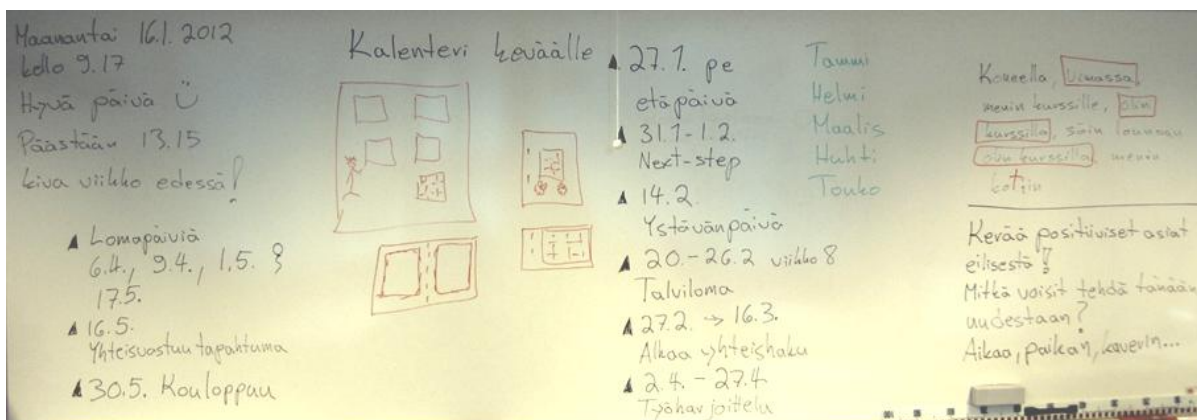 Maanantai 16.1. 2012
kello 9.17
Hyvä päivä
Päästään 13.15
kiva viikko edessä!
Lomapäiviä
6.4., 9.4., 1.5. &
17.5.
16.5.
Yhteisvastuutapahtuma
30.5. Kouloppuu
Kalenteri keväälle
27.1. pe
etäpäivä
31.1-1.2.
Next-step
14.2.
Ystävänpäivä
20.-26.2 viikko 8
Talviloma
27.2. → 16.3.
Alkaa yhteishaku
2.4. - 27.4.
Työharjoittelu
Tammi
Helmi
Maalis
Huhti
Touko
Koneella, uimassa,
menin kurssille, olin
kurssilla, söin lounaan
olin kurssilla, menin
kotiin
Kerää positiiviset asiat
eilisestä!
Mitkä voisit tehdä tänään
uudestaan?
Aikaa, paikan, kaverin...